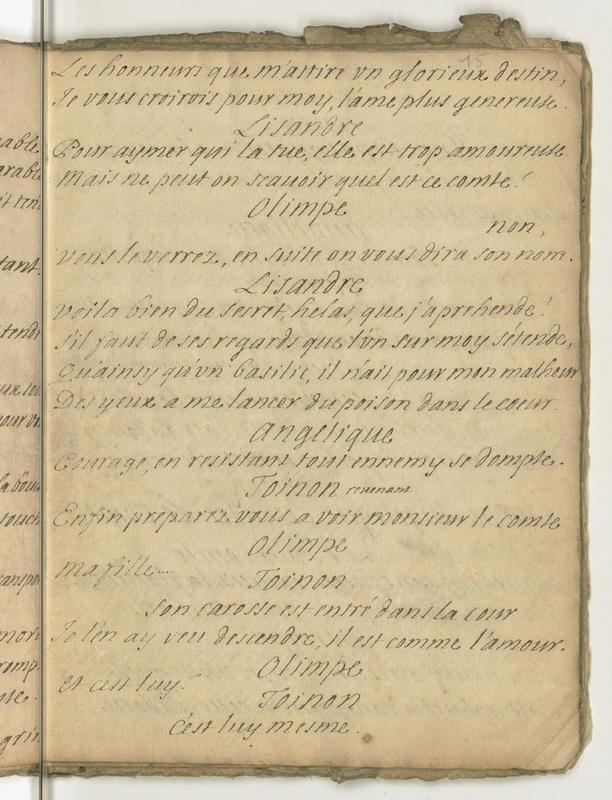 15
Les honneurs que m'attire vn glorieux destin,
Je vous croirois pour moy, l'ame plus genereuse.
Lisandre
Pour aymer qui la tue, elle est trop amoureuse
Mais ne peut on scavoir quel est ce comte?
Olimpe
non,
vous le verrez, en suite on vous dira son nom.
Lisandre
voila bien du secret, helas, que j'aprehende!
s'il faut de ses regards que l'vn sur moy s'étende,
Qu'ainsy qu'vn basilic, il n'ait pour mon malheur
Des yeux a me lancer du poison dans le coeur.
Angelique
Courage, en resistant tout ennemy se dompte.
Toinon revenant
Enfin preparez vous a voir monsieur le comte
Olimpe
ma fille....
Toinon
son carosse est entré dans la cour
Je l'en ay veu descendre, il est comme l'amour.
Olimpe
et c'est luy?
Toinon
c'est luy mesme.
able
arable
tant.
tendr
pour
la bou
touch
transpo
mort
romp
grin